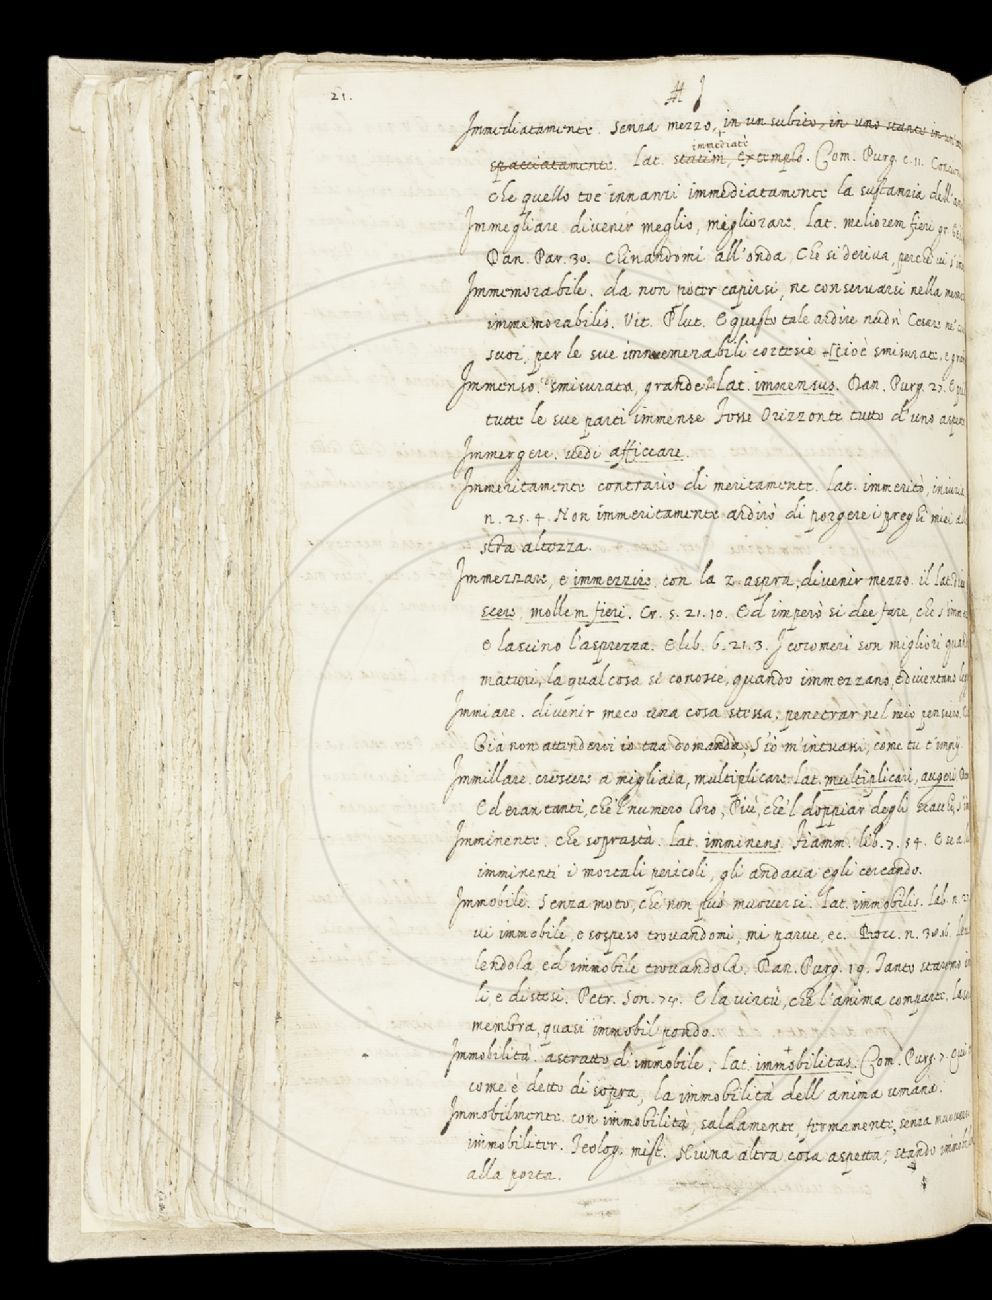 21.
Immediatamente. Senza mezzo, in un subito, in uno stante in un
immediatè
spacciatamente. Lat. statim, extemplo. Com. Purg. c. 11.
che quello toe innanzi immediatamente la sustanzia dell'
Immegliare divenir meglio, migliorare. Lat. meliorem fieri gr.
Dan. Par. 30. Chinandomi all'onda, Che si deriva, perchè vi s'
Immemorabile. da non poter capirsi, ne conservarsi nella
immemorabilis. Vit. Plut. E questo tale ardire nudrì Cesare ne'
suoi, per le sue innumerabili cortesie cioè smisurate, e
Immenso, smisurata, grande Lat. immensus. Dan. Purg. 27. E
tutte le sue parti immense Fosse Orizzonte tutto d'uno aspetto
Immergere. vedi afficcare.
Immeritamente contrario di meritamente. Lat. immeritò, iniuria
n. 25. 4. Non immeritamente ardirò di porgere i preghi miei
stra altezza.
Immezzare, e immezzire, con la z aspra, divenir mezzo. il Lat.
scere, mollem fieri. Cr. 5. 21. 10. Ed imperò si dee fare, che s'
e lascino l'asprezza. E lib. 6. 21. 3. I cocomeri son migliori
maturi, la qual cosa si conosce, quando immezzano, e diventano
Immiare. divenir meco una cosa stessa, penetrar nel mio pensiero.
Già non attenderei io tua domanda, S'io m'intuassi, come tu t'immii.
Immillare crescere a migliaia, multiplicare Lat. multiplicari, augeri
Ed eran tanti, che'l numero loro, Più, che'l doppiar degli scacchi, s'
Imminente. che soprastà. Lat. imminens. Fiamm. lib. 7. 54. E
imminenti i mortali pericoli, gli andava egli cercando.
Immobile. Senza moto, che non può muoversi. Lat. immobilis. Lab. n.
vi immobile, e sospeso trovandomi, mi parve, ec.
lendola ed immobile trovandola. Dan. Purg. 19. Tanto staremo
li e distesi. Petr. Son. E la virtù, che l'anima comparte,
membra, quasi immobil pondo.
Immobilità. astratto d'immobile. Lat. immobilitas. Com. Purg. 7.
come è detto di sopra, la immobilità dell'anima umana.
Immobilmente. con immobilità, saldamente, fermamente, senza
immobiliter. Teolog. mist. Niuna altra cosa aspetta, stando
alla porta.